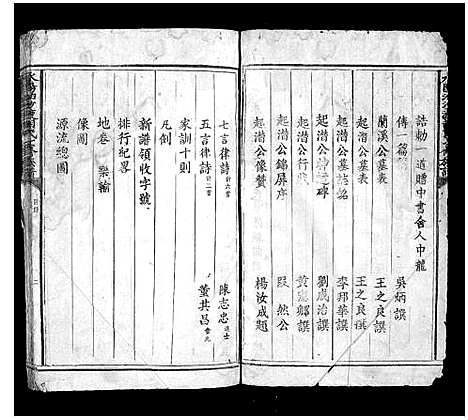 誥勅一道贈中書舍人中龍
傳一篇 吳炳譔
蘭溪公墓表 王之良譔
起潛公墓表 王之良譔
起潛公墓誌銘 李邦華譔
起潛公神道碑 劉咸治譔
起潛公行狀
起潛公錦屏序
起潛公像贊 楊汝成題
七言律詩 計六首 陳志忠 進士
五言律詩 計二首 董其昌
家訓十則
凡例
新譜領收字號
排行紀畧
地卷 樂輸
像圖
源流總圖